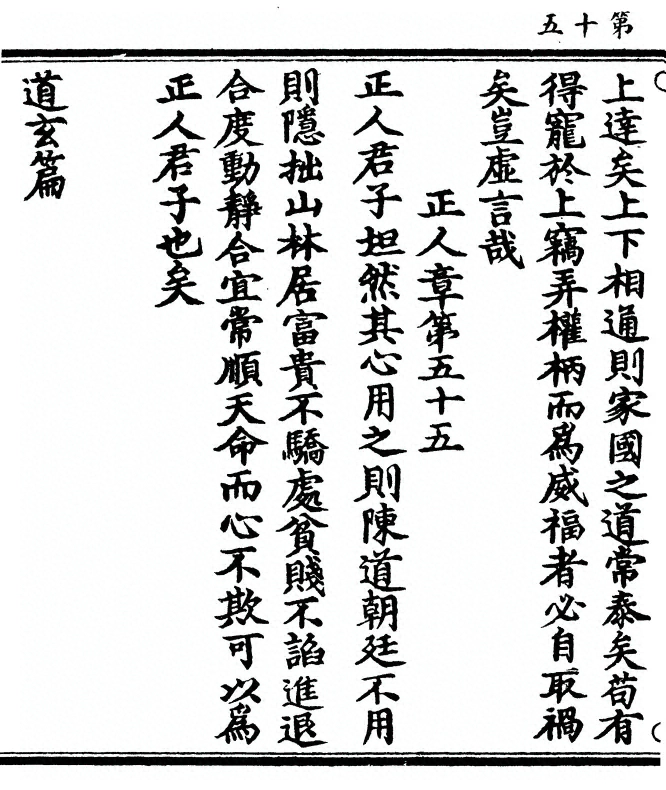 第十五
上達矣上下相通則家國之道常泰矣苟有
得寵於上竊弄權柄而爲威福者必自取禍
矣豈虛言哉
正人章第五十五
正人君子坦然其心用之則陳道朝廷不用
則隱拙山林居富貴不驕處貧賤不諂進退
合度動靜合宜常順天命而心不欺可以爲
正人君子也矣
道玄篇